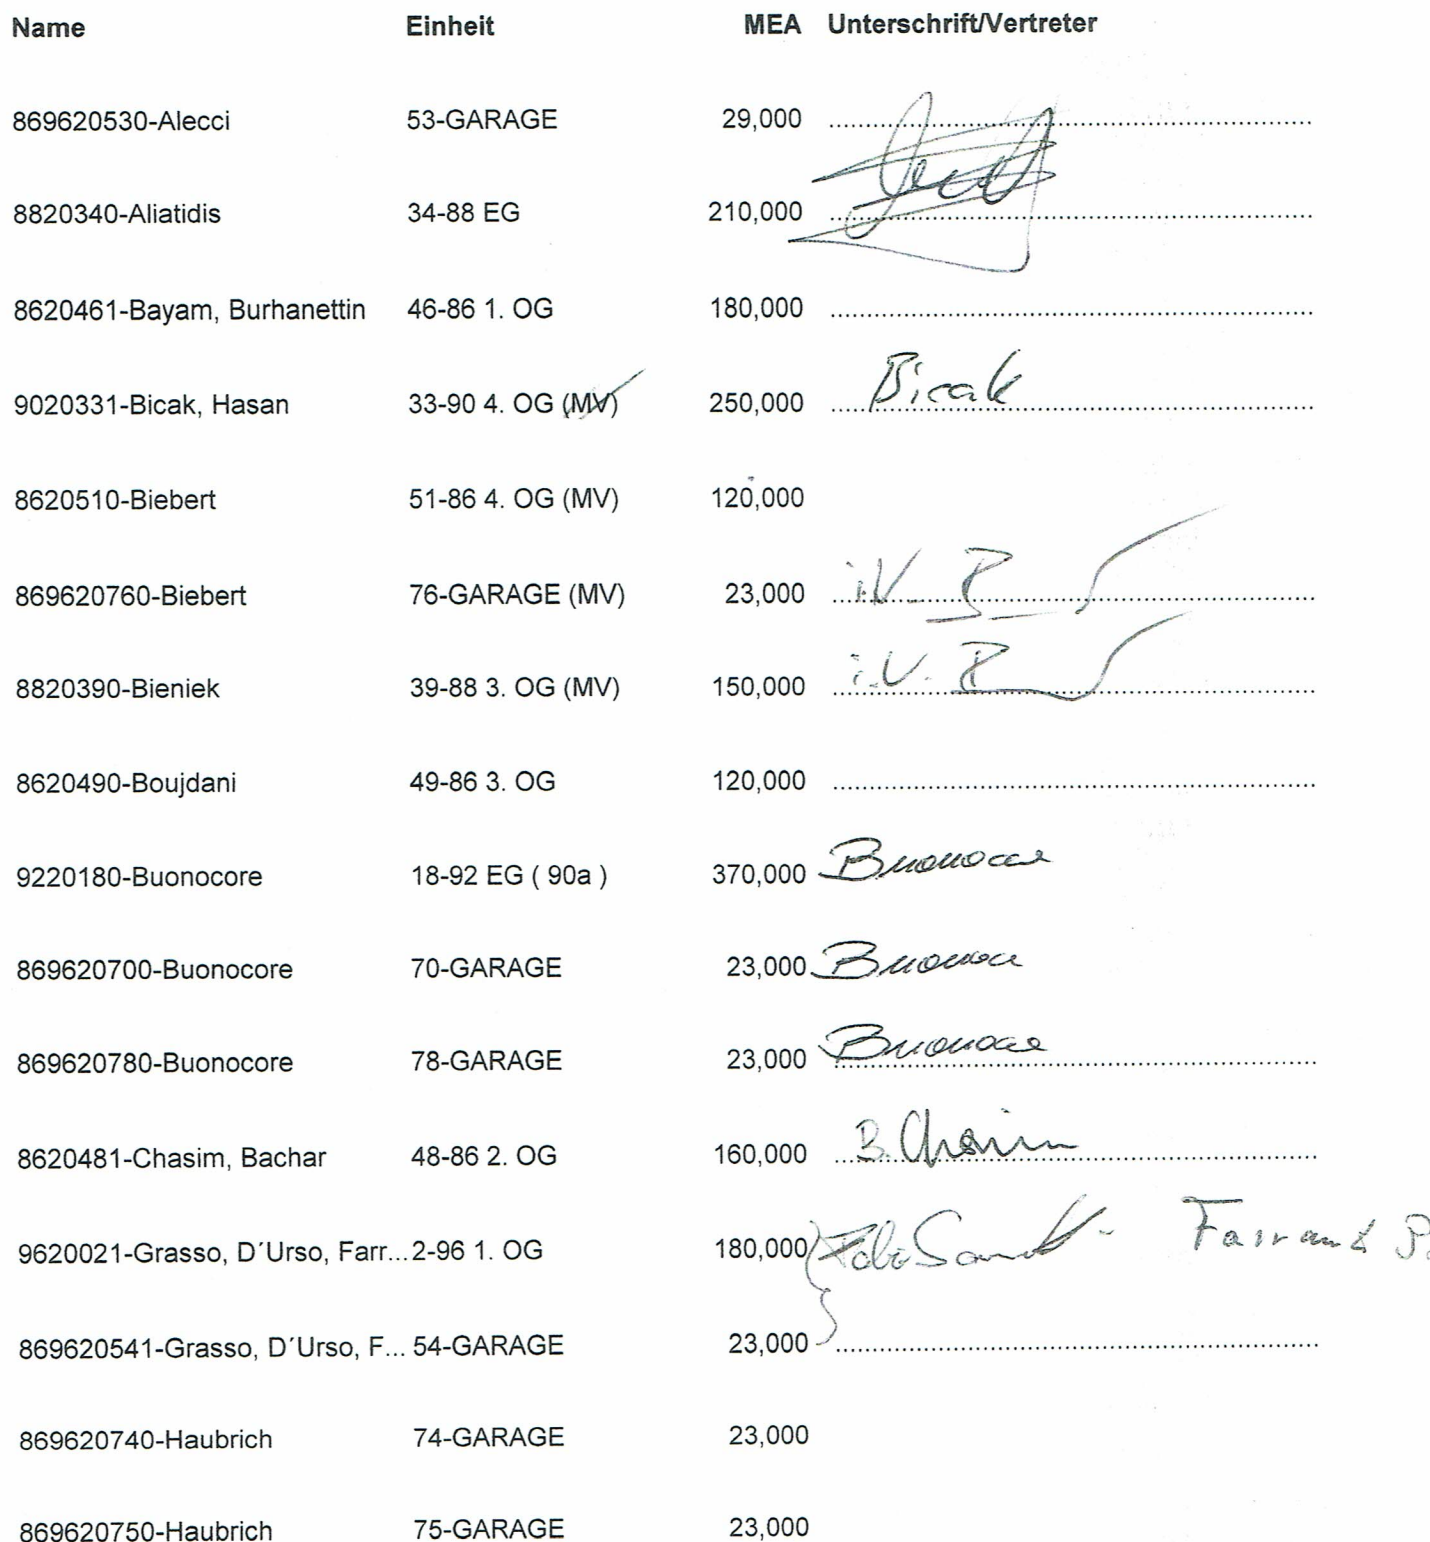 Name Einheit MEA Unterschrift/Vertreter
869620530-Alecci 53-GARAGE 29,000
8820340-Aliatidis 34-88 EG 210,000
8620461-Bayam, Burhanettin 46-86 1. OG 180,000
9020331-Bicak, Hasan 33-90 4. OG (MV) 250,000 Bicak
8620510-Biebert 51-86 4. OG (MV) 120,000
869620760-Biebert 76-GARAGE (MV) 23,000 i.V.
8820390-Bieniek 39-88 3. OG (MV) 150,000 i.V.
8620490-Boujdani 49-86 3. OG 120,000
9220180-Buonocore 18-92 EG ( 90a ) 370,000 Buonocore
869620700-Buonocore 70-GARAGE 23,000 Buonocore
869620780-Buonocore 78-GARAGE 23,000 Buonocore
8620481-Chasim, Bachar 48-86 2. OG 160,000 B. Chasim
9620021-Grasso, D´Urso, Farr... 2-96 1. OG 180,000
869620541-Grasso, D´Urso, F... 54-GARAGE 23,000
869620740-Haubrich 74-GARAGE 23,000
869620750-Haubrich 75-GARAGE 23,000